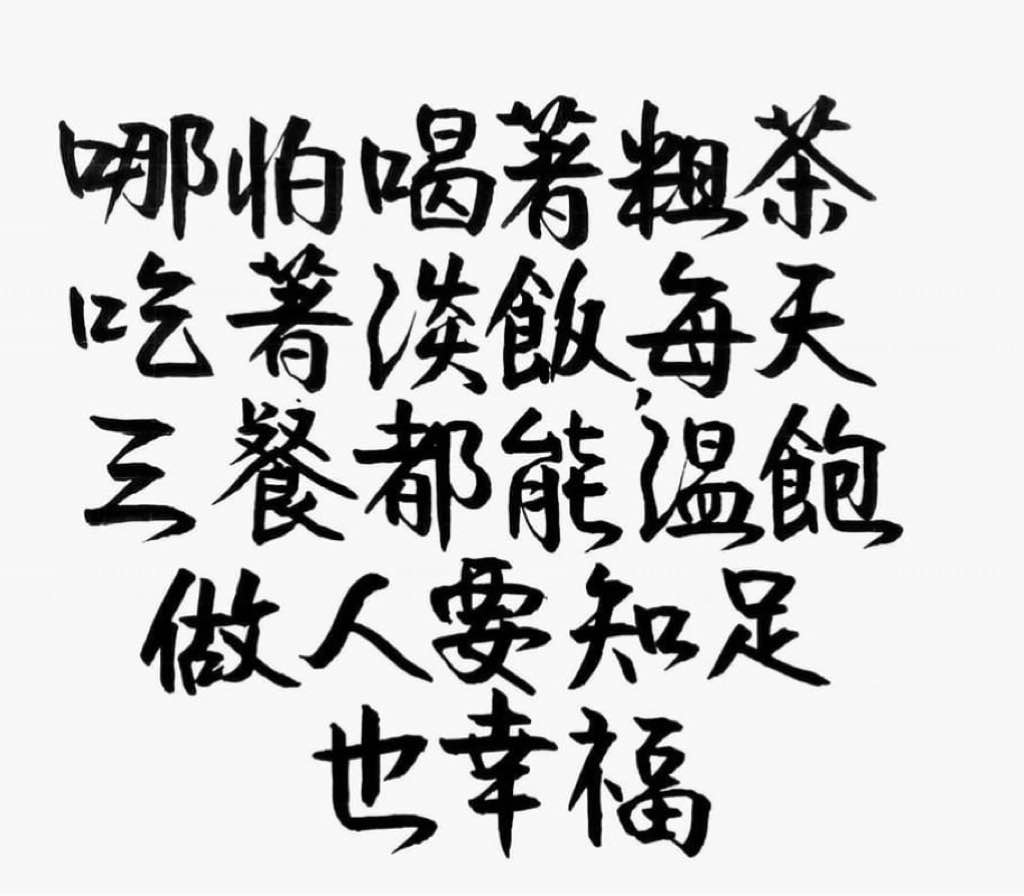 哪怕喝著粗茶
吃著淡飯每天
三餐都能溫飽
做人要知足
也幸福